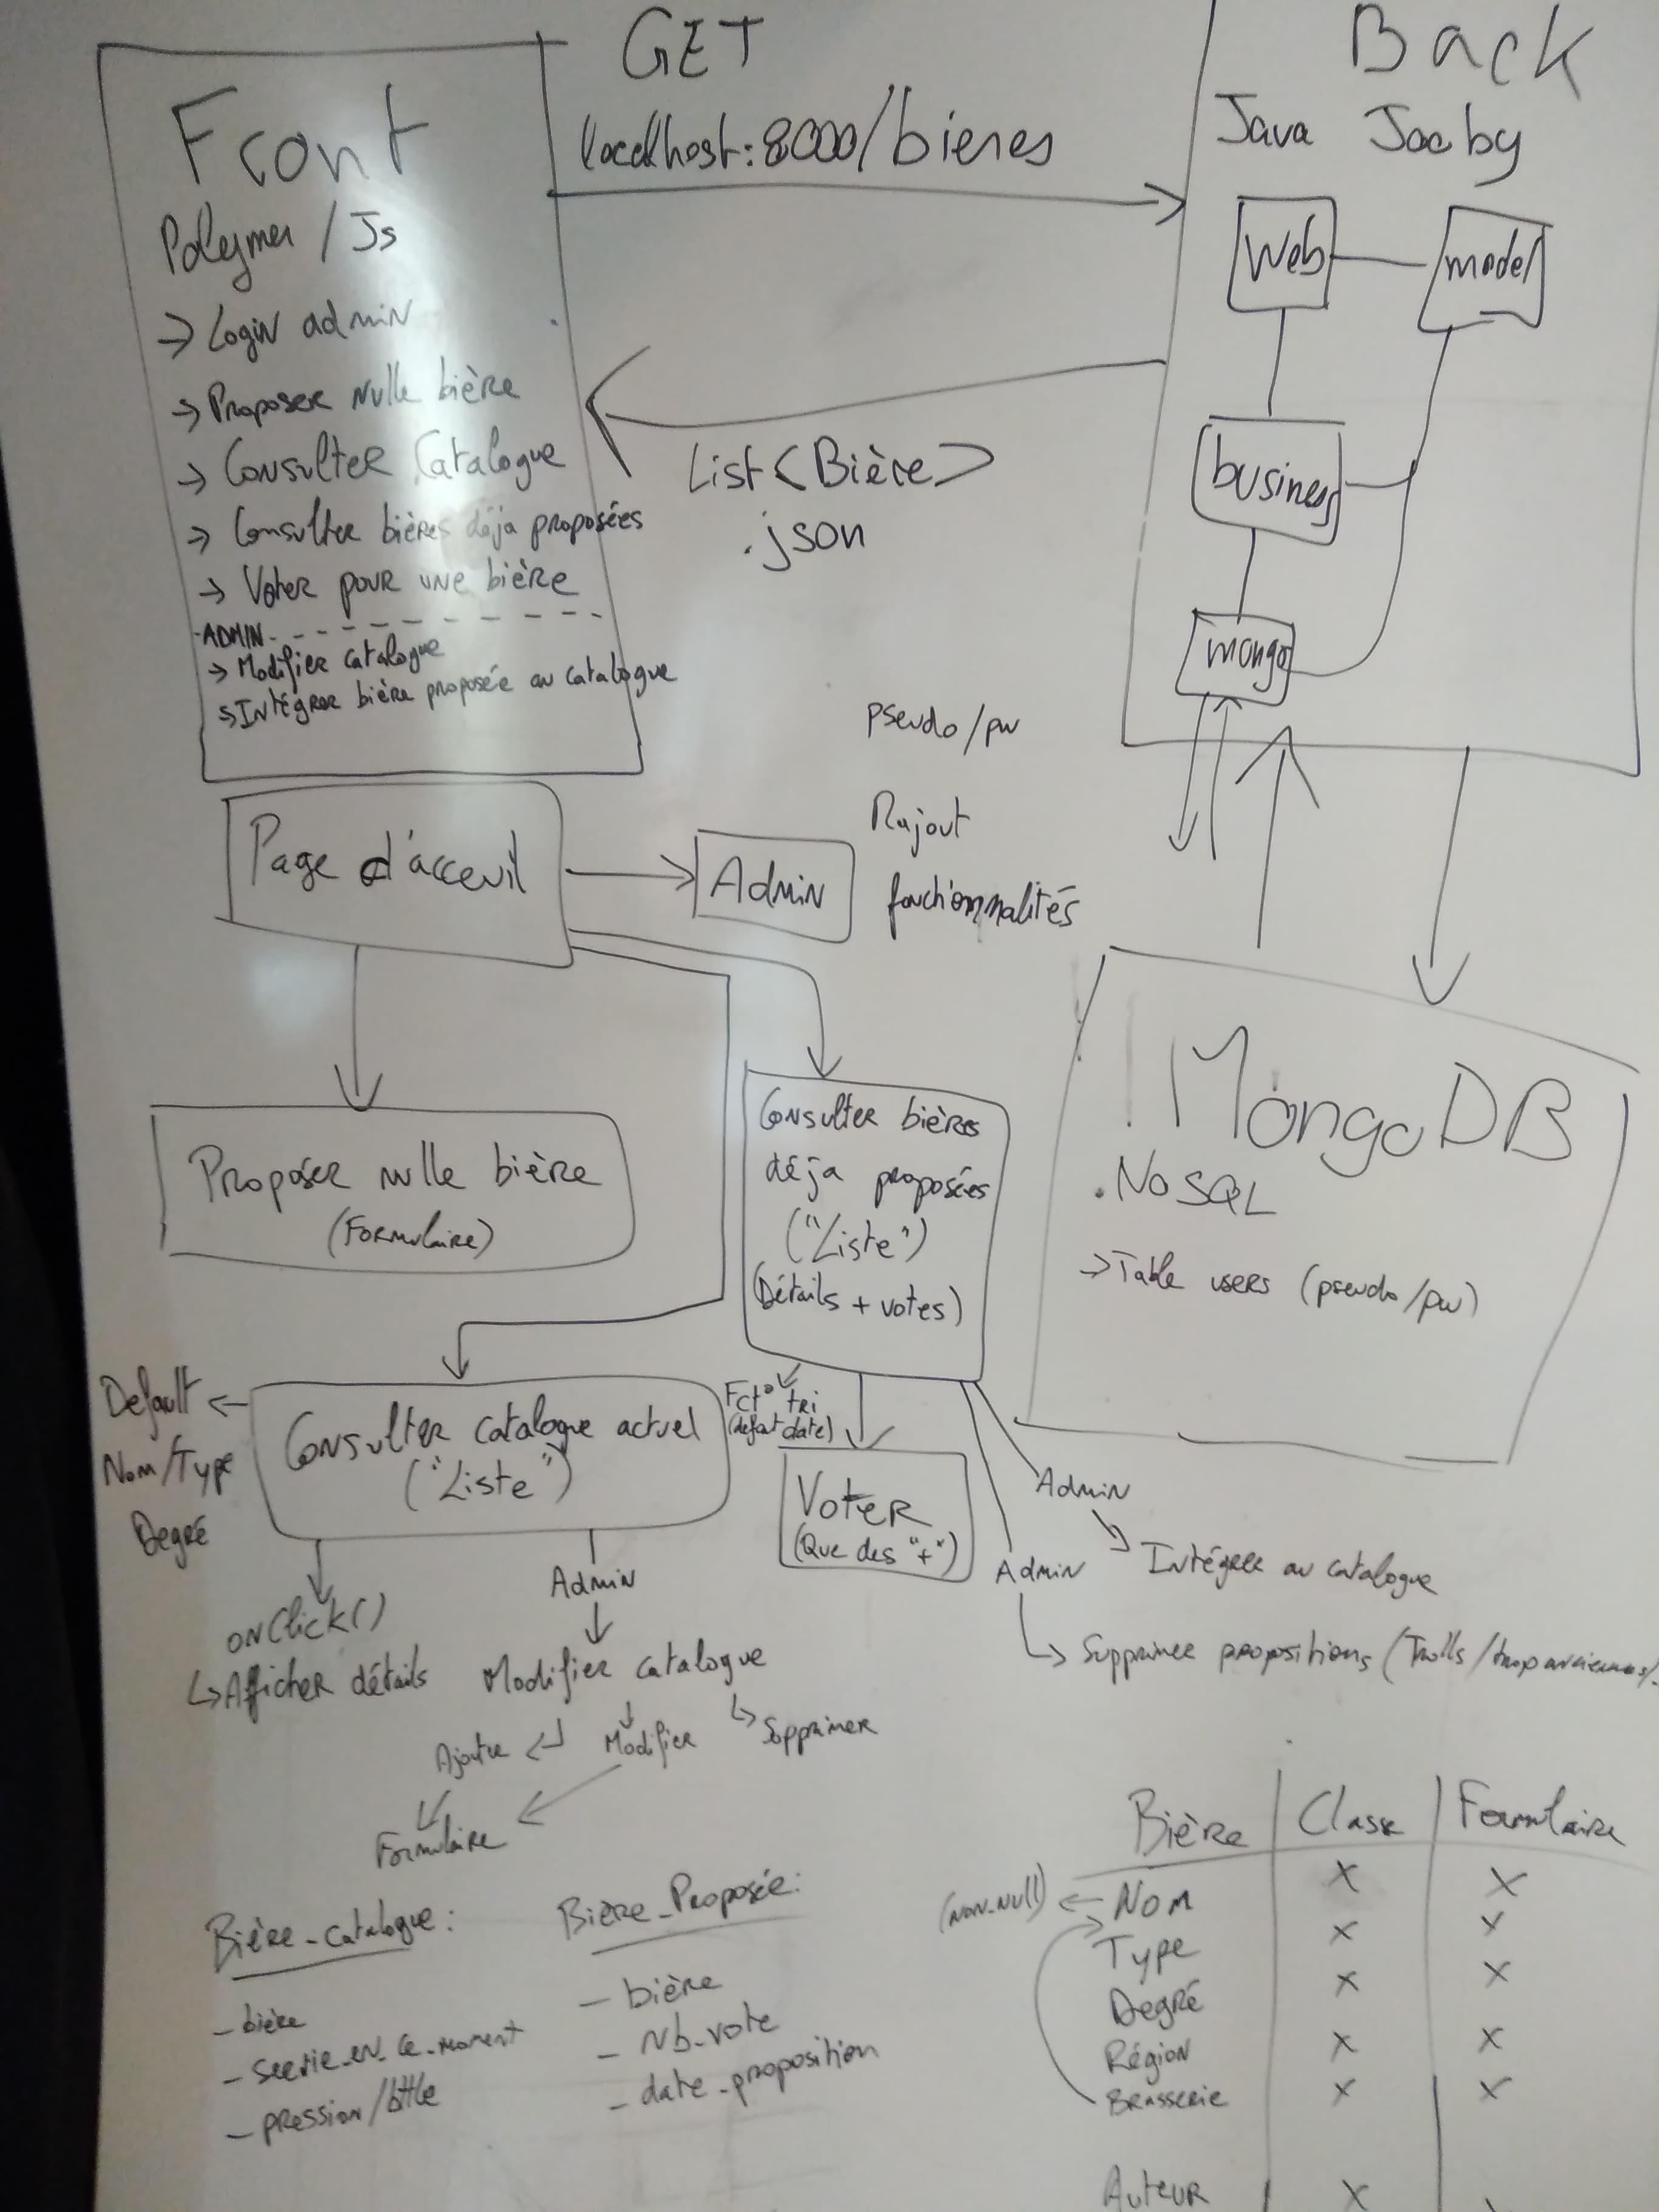 Front
Polymer / Js
→ Login admin
→ Proposer Nvlle bière
→ Consulter Catalogue
→ Consulter bières déja proposées
→ Voter pour une bière
-ADMIN- - - - - - - - -
→ Modifier catalogue
→ Intégrer bière proposée au catalogue
GET
localhost:8000/bieres
List<Bière>
.json
Back
Java Jooby
Web
model
business
mongo
pseudo/pw
Rajout
fonctionnalités
Page d'acceuil
Admin
Proposer nvlle bière
(Formulaire)
Consulter bières
déja proposées
("Liste")
(Détails + votes)
MongoDB
. NoSQL
→ Table users (pseudo/pw)
Default
Nom/Type
Degré
Consulter catalogue actuel
("Liste")
Fct° tri
(défaut date)
Voter
(Que des "+")
Admin
Intégrer au catalogue
Admin
Supprimer propositions (Trolls/trop anciennes/.
onClick()
Afficher détails
Admin
Modifier catalogue
Ajouter
Modifier
Supprimer
Formulaire
Bière_catalogue:
- bière
- servie_en_ce_moment
- pression/btlle
Bière_Proposée:
- bière
- Nb_vote
- date_proposition
Bière | Classe | Formulaire
(non-null) ← Nom X X
Type X X
Degré X X
Région X X
Brasserie X X
Auteur X